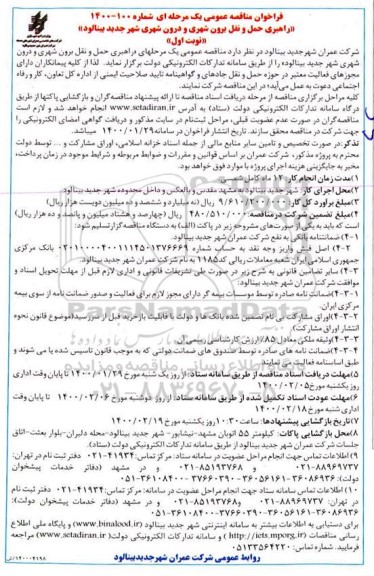 فراخوان مناقصه عمومی یک مرحله ای شماره ۱۰۰-۱۴۰۰
«راهبری حمل و نقل برون شهری و درون شهری شهر جدید بینالود»
«نوبت اول»
شرکت عمران شهرجدید بینالود در نظر دارد مناقصه عمومی یک مرحله‌ای راهبری حمل و نقل برون شهری و درون
شهری شهر جدید بینالود» را از طریق سامانه تدارکات الکترونیکی دولت برگزار نماید. لذا از کلیه پیمانکاران دارای
مجوزهای فعالیت معتبر در حوزه حمل و نقل جاده‌ای و گواهینامه تایید صلاحیت ایمنی از اداره کل تعاون، کار و رفاه
اجتماعی دعوت به عمل می‌آید؛ در این مناقصه شرکت نمایند.
کلیه مراحل برگزاری مناقصه از مرحله دریافت اسناد مناقصه تا ارائه پیشنهاد مناقصه‌گران و بازگشایی پاکتها از طریق
درگاه سامانه تدارکات الکترونیکی دولت (ستاد) به آدرس www.setadiran.ir انجام خواهد شد و لازم است
مناقصه‌گران در صورت عدم عضویت قبلی، مراحل ثبت‌نام در سایت مذکور و دریافت گواهی امضای الکترونیکی را
جهت شرکت در مناقصه محقق سازند. تاریخ انتشار فراخوان در سامانه ۱۴۰۰/۰۱/۲۹ میباشد.
تذکر: در صورت تخصیص و تامین سایر منابع مالی از جمله اسناد خزانه اسلامی، اوراق مشارکت و ... توسط دولت
محترم به پروژه مذکور، شرکت عمران بر اساس قوانین و مقررات و ضوابط مربوطه و شرایط موجود در زمان پرداخت،
مخیر به جایگزینی هزینه اجرای پروژه با موارد فوق خواهد بود.
۱) مدت زمان انجام کار: ۱۴ ماه کامل شمسی
۲) محل اجرای کار: شهر جدید بینالود به مشهد مقدس و بالعکس و داخل محدوده شهر جدید بینالود.
۳) مبلغ برآورد کل کار: ۹/۶۱۰/۲۰۰/۰۰۰ ریال (نه میلیارد و ششصد و ده میلیون دویست هزار ریال)
۴) مبلغ تضمین شرکت در مناقصه: ۴۸۰/۵۱۰/۰۰۰ ریال (چهارصد و هشتاد میلیون و پانصد و ده هزار ریال)
است که باید به یکی از صورت‌های مشروحه زیر در پاکت (الف) به دستگاه مناقصه‌گزار تسلیم شود:
۴-۱) ضمانتنامه بانکی به نفع شرکت عمران شهر جدید بینالود.
۴-۲) اصل فیش واریز وجه نقد به حساب شماره بانک مرکزی
جمهوری اسلامی ایران شعبه معاملات ریالی کد ۱۱۸۵ به نام شرکت عمران شهر جدید بینالود.
۴-۳) سایر تضامین قانونی به شرح زیر در صورت طی تشریفات قانونی و اداری لازم قبل از مهلت تحویل اسناد و
موافقت شرکت عمران شهر جدید بینالود.
۴-۳-۱) ضمانت نامه صادره توسط موسسات بیمه گر دارای مجوز لازم برای فعالیت و صدور ضمانت نامه از سوی بیمه
مرکزی ایران
۴-۳-۲) اوراق مشارکت بی نام تضمین شده بانک ها و دولت با قابلیت بازخرید قبل از سررسید (موضوع قانون نحوه
انتشار اوراق مشارکت)
۴-۳-۳) وثیقه ملکی معادل ۸۵٪ ارزش کارشناسی رسمی آن
۴-۳-۴) ضمانت نامه های صادره توسط صندوق های ضمانت دولتی که به موجب قانون تاسیس شده یا می شوند و
طبق اساسنامه فعالیت می نمایند.
۵) مهلت دریافت اسناد مناقصه از طریق سامانه ستاد: از روز یک شنبه مورخ ۱۴۰۰/۰۱/۲۹ تا پایان وقت اداری
روز یکشنبه مورخ ۱۴۰۰/۰۲/۰۵
۶) مهلت عودت اسناد تکمیل شده از طریق سامانه ستاد: از روز دوشنبه مورخ ۱۴۰۰/۰۲/۰۶ تا پایان وقت
اداری شنبه مورخ ۱۴۰۰/۰۲/۱۸
۷) تاریخ بازگشایی پیشنهادها: ساعت ۱۰:۳۰ روز یکشنبه مورخ ۱۴۰۰/۰۲/۱۹
۸) محل بازگشایی پاکات: کیلومتر ۵۵ اتوبان مشهد-نیشابور- شهر جدید بینالود-محله دلبران-بلوار بعثت-اتاق
جلسات شرکت عمران شهر جدید بینالود از طریق سامانه تدارکات الکترونیکی دولت (ستاد).
۹) اطلاعات تماس جهت انجام مراحل عضویت در سامانه ستاد: مرکز تماس: ۴۱۹۳۴-۰۲۱ دفتر ثبت نام در تهران:
۸۸۹۶۹۷۳۷-۰۲۱ و ۸۵۱۹۳۷۶۸-۰۲۱ و در مشهد (دفاتر خدمات پیشخوان دولت):
۱۰) اطلاعات تماس سامانه ستاد جهت انجام مراحل عضویت در سامانه: مرکز تماس: ۴۱۹۳۴-۰۲۱ دفتر ثبت نام
در تهران: ۸۸۹۶۹۷۳۷-۰۲۱ و ۸۵۱۹۳۷۶۸-۰۲۱ و در مشهد (دفاتر خدمات پیشخوان دولت):
برای دستیابی به اطلاعات بیشتر به سامانه اینترنتی شهر جدید بینالود (www.binalood.ir) و پایگاه ملی اطلاع
رسانی مناقصات (http://iets.mporg.ir) و سامانه تدارکات الکترونیکی دولت (www.setadiran.ir) مراجعه
فرمایید. شماره تماس: ۰۵۱۳۳۵۶۴۲۲۰
روابط عمومی شرکت عمران شهر جدید بینالود